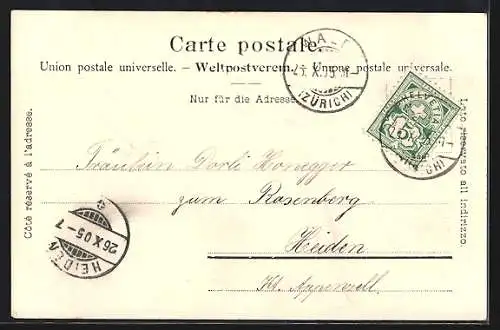 Carte postale.
Union postale universelle. — Weltpostverein. — Unione postale universale.
Nur für die Adresse.
Côté réservé à l'adresse.
Lato riservato all' indirizzo.
WALD
25. X. 05
(ZÜRICH)
HELVETIA
5
Fräulein Dorli Honegger
zum Rosenberg
Heiden
Kt. Appenzell.
HEIDEN
26. X. 05 - 7